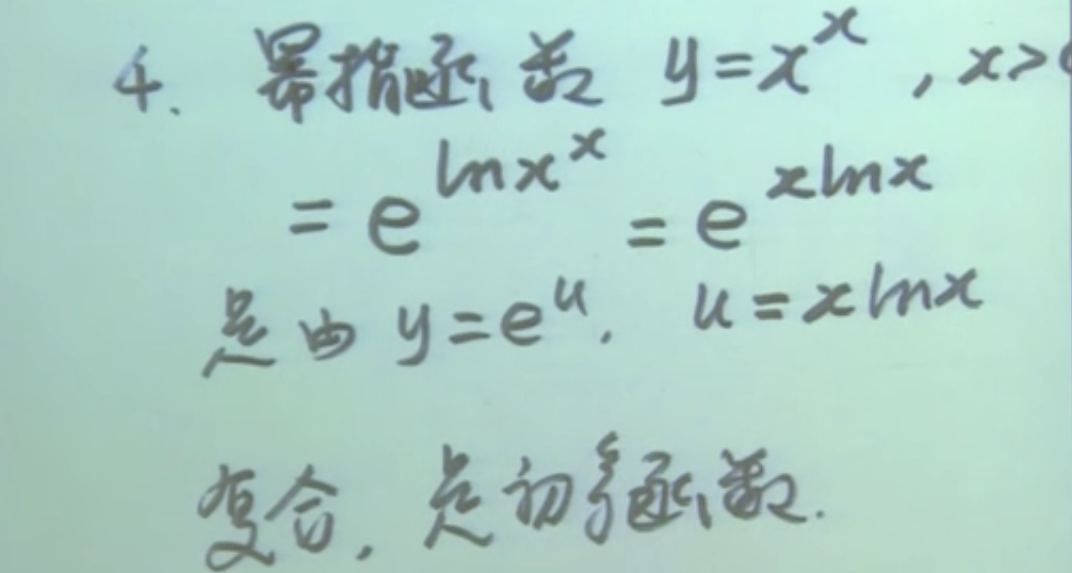 4. 幂指函数 y=x^x , x>0
= e^{lnx^x} = e^{xlnx}
是由 y=e^u. u=xlnx
复合, 是初等函数.